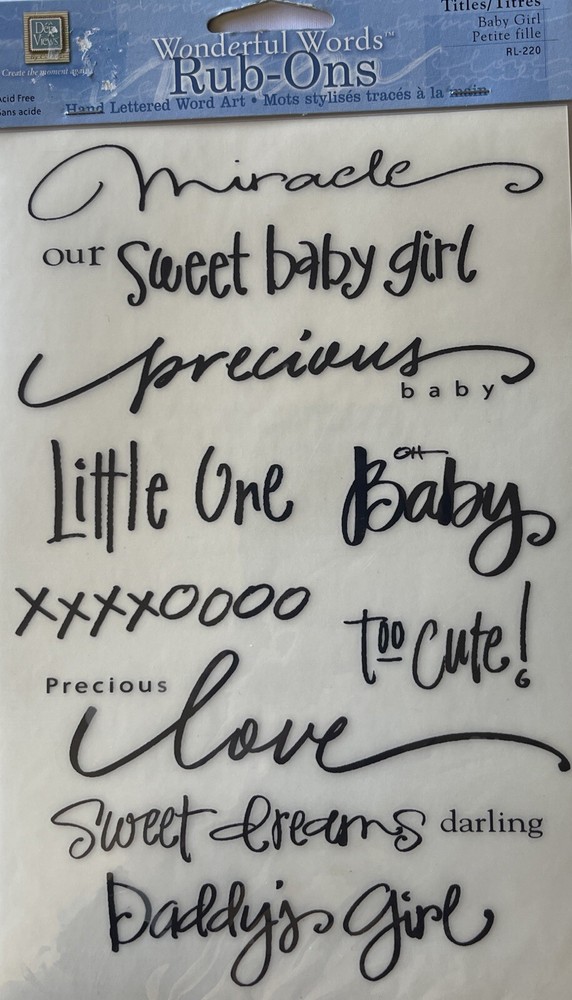 Titles/Titres
Baby Girl
Petite fille
RL-220
Déjà Views
Create the moment again
Acid Free
Sans acide
Wonderful Words™
Rub-Ons
Hand Lettered Word Art • Mots stylisés tracés à la main
miracle
our sweet baby girl
precious
baby
Little One
OH Baby
XXXXOOOO
too cute!
Precious
love
sweet dreams darling
Daddy's Girl